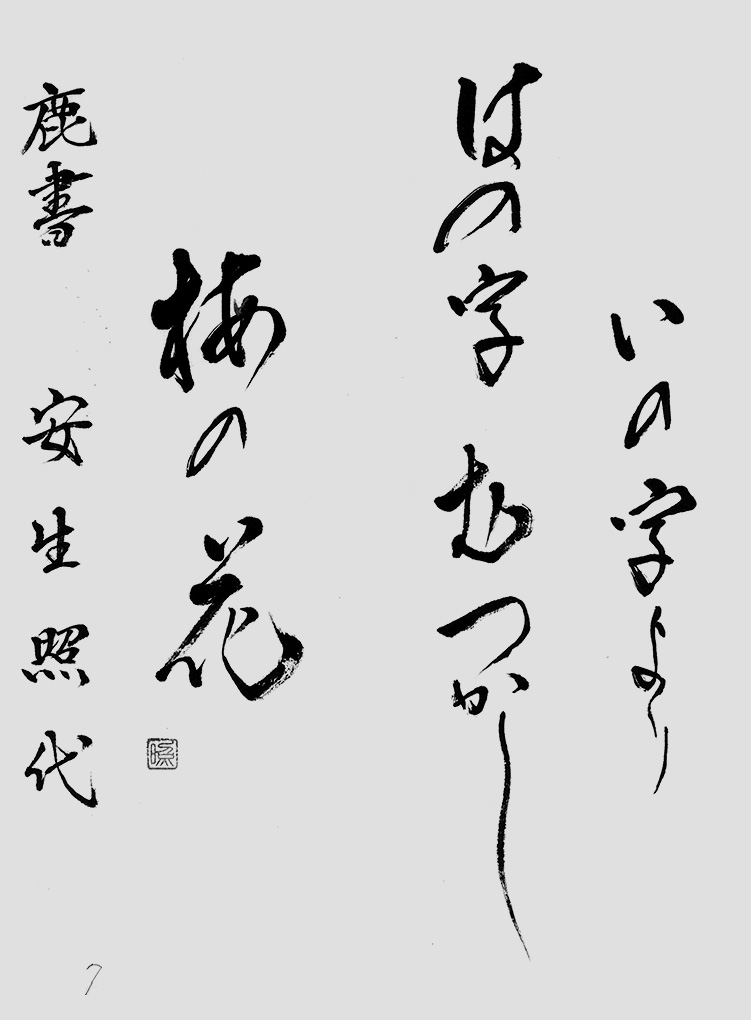 いの字より
はの字むつかし
梅の花
鹿書 安生照代
照
7